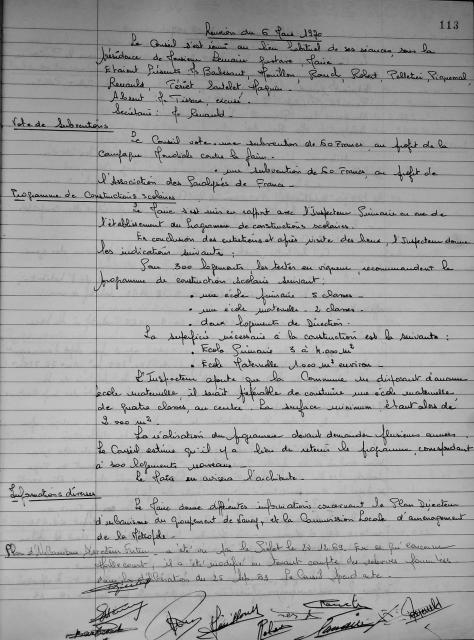 113
Réunion du 6 Mars 1970
Le Conseil s'est réuni au lieu habituel de ses séances, sous la
Présidence de Monsieur Gustave Maire.
Etaient Présents Mrs Robert, Pelletier, Piquemal,
Renault,
Absent Mr Tissier, excusé.
Secrétaire : Mr Renault.
Vote de Subventions
Le Conseil vote une subvention de 60 Francs, au profit de la
Campagne Mondiale contre la faim.
une subvention de 60 Francs, au profit de
l'Association des Paralysés de France.
Programme de Constructions scolaires
Le Maire s'est mis en rapport avec l'Inspecteur Primaire en vue de
l'établissement du Programme de constructions scolaires.
En conclusion des entretiens et après visite des lieux, l'Inspecteur donne
les indications suivantes :
Pour 300 logements, les textes en vigueur, recommandent le
programme de construction scolaire suivant :
• une école primaire - 5 classes -
• une école maternelle - 2 classes -
• deux logements de Direction.
La superficie nécessaire à la construction est la suivante :
• Ecole Primaire 3 à 4.000 m²
• Ecole Maternelle 1.000 m² environ -
L'Inspecteur ajoute que la Commune ne disposant d'aucune
école maternelle, il serait préférable de construire une école maternelle
de quatre classes, au centre. La surface minimum étant alors de
2 000 m².
La réalisation du programme devant demander plusieurs années.
Le Conseil estime qu'il y a lieu de retenir le programme, correspondant
à 300 logements nouveaux -
Le Maire en avisera l'architecte.
Informations diverses
Le Maire donne différentes informations concernant le Plan Directeur
d'urbanisme du groupement de et la Commission Locale d'aménagement
de la Métropole -
Plan d'Urbanisme Directeur a été par le Préfet le 24.12.69. En ce qui concerne
il a été modifié en tenant compte des réserves formulées
dans la délibération du 25 69. Le Conseil prend acte.